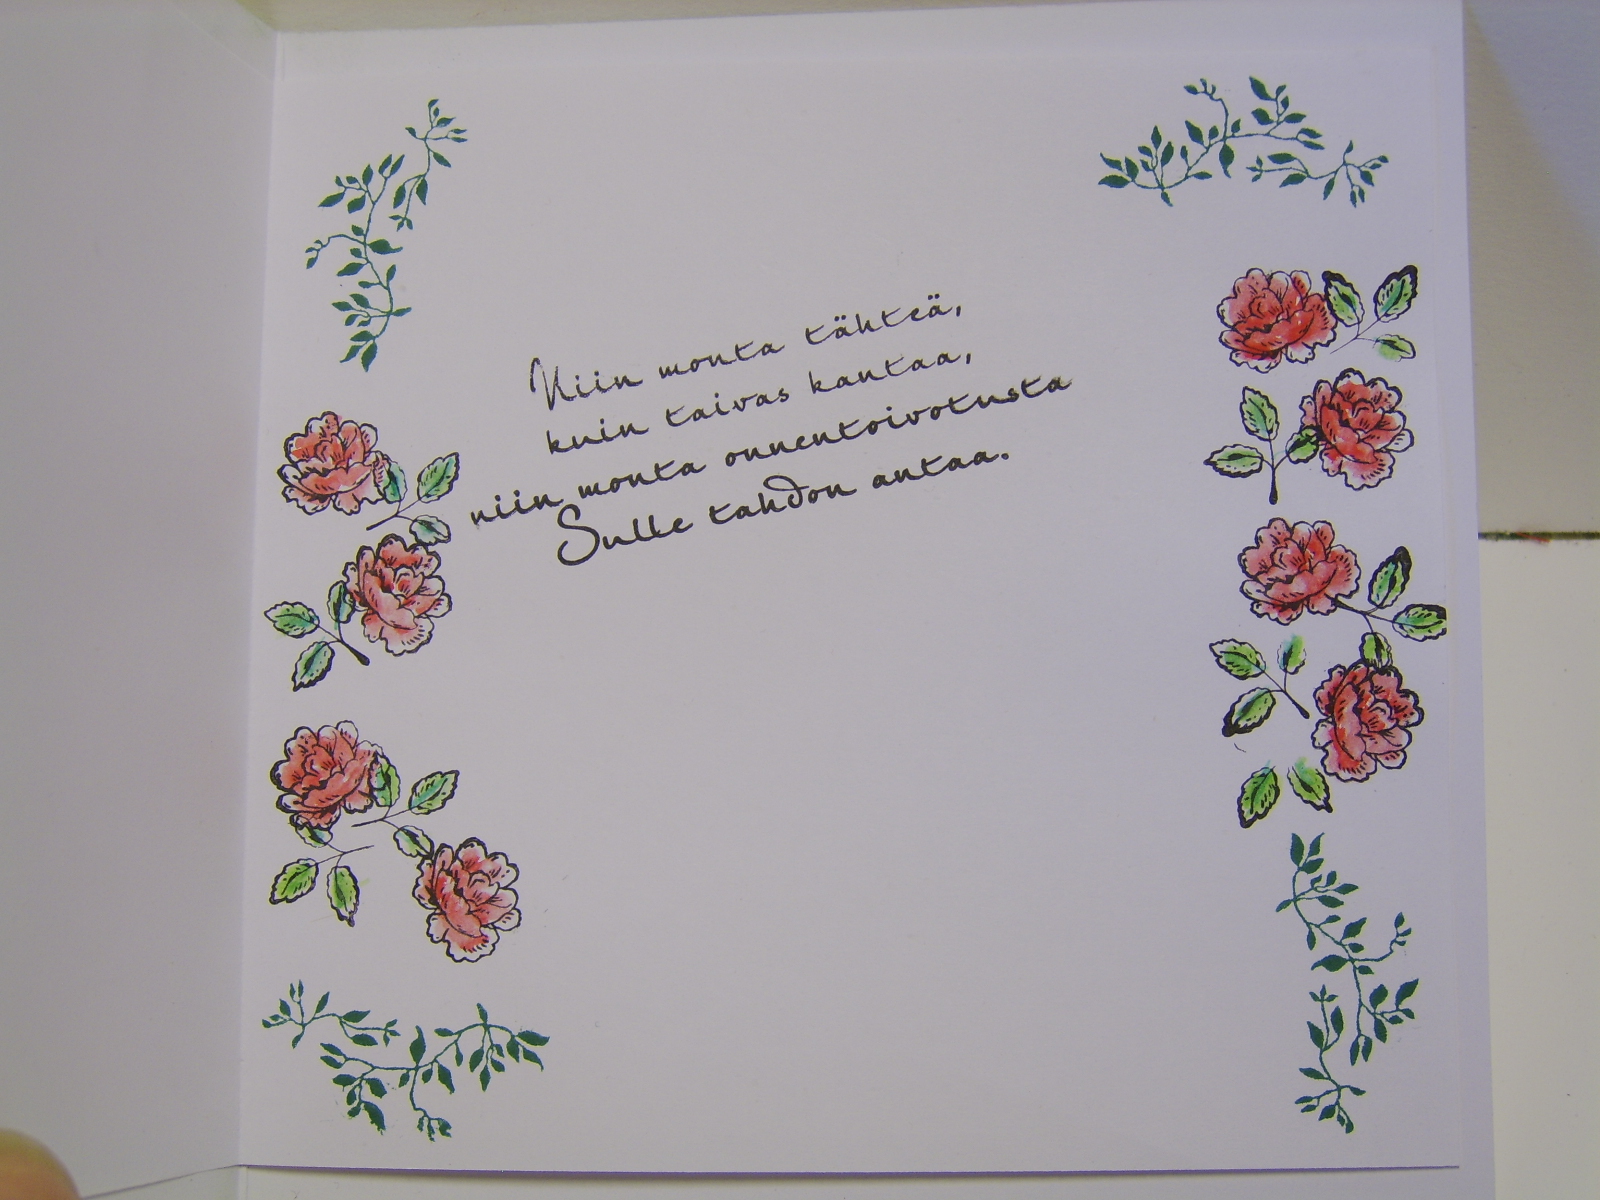 Niin monta tähteä,
kuin taivas kantaa,
niin monta onnentoivotusta
Sulle tahdon antaa.